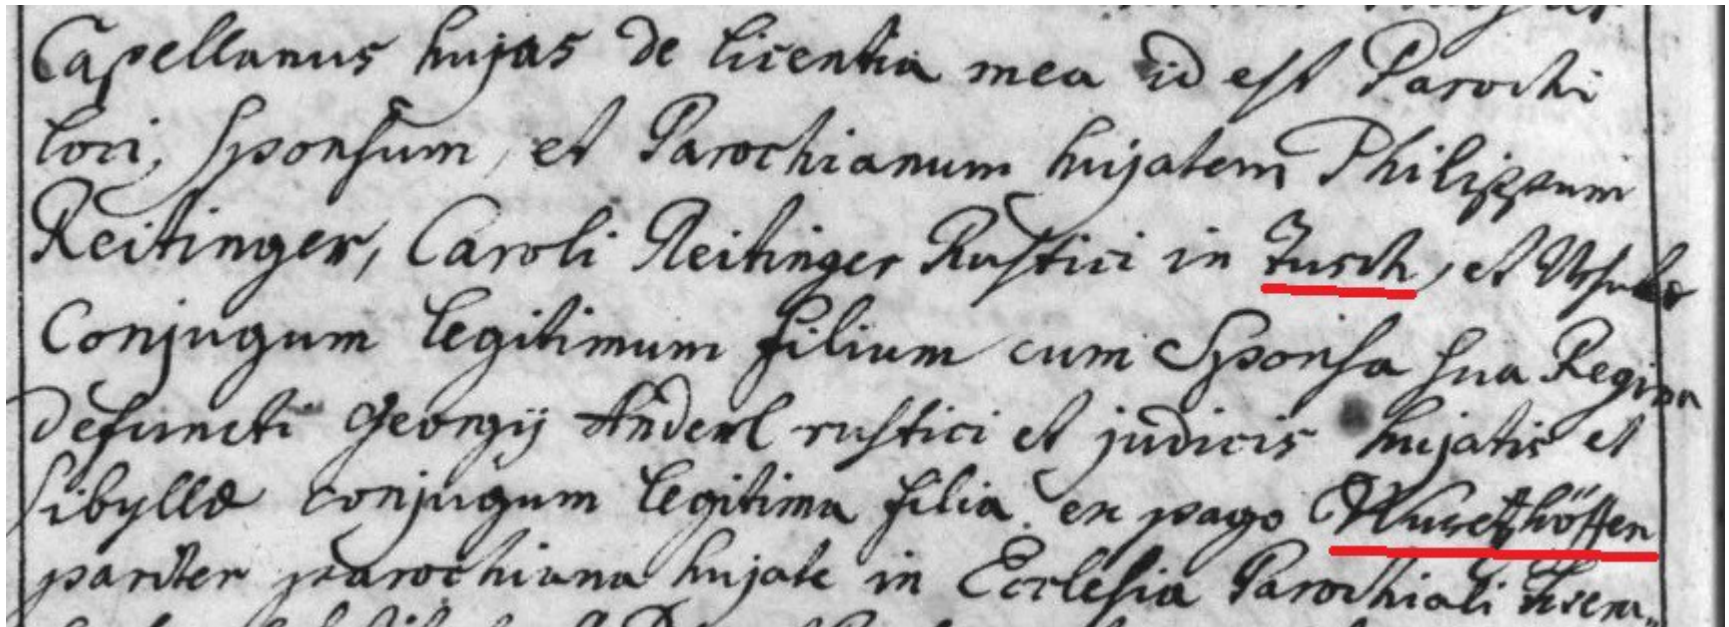 Capellanus hujas de licentia mea id est Parochi
loci, Sponsum, et Parochianum hujatem Philippum
Reitinger, Caroli Reitinger Rustici in Zusch, et Ursulæ
Conjugum legitimum filium cum Sponsa sua Regina
Defuncti Georgij Anderl rustici et judicis hujatis et
Sibyllæ conjugum legitima filia ex pago
pariter parochiana hujate in Ecclesia Parochiali